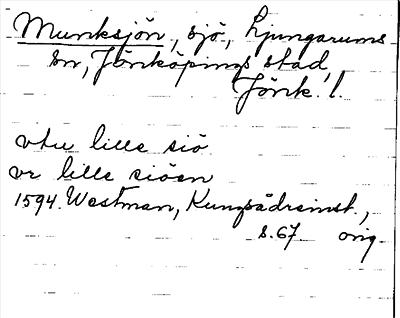 Munksjön, sjö, Ljungarums
sn, Jönköpings stad,
Jönk. l.
vtu lille siö
vr lille siöen
1594. Westman, Kungsådreinst.,
s. 67 orig.